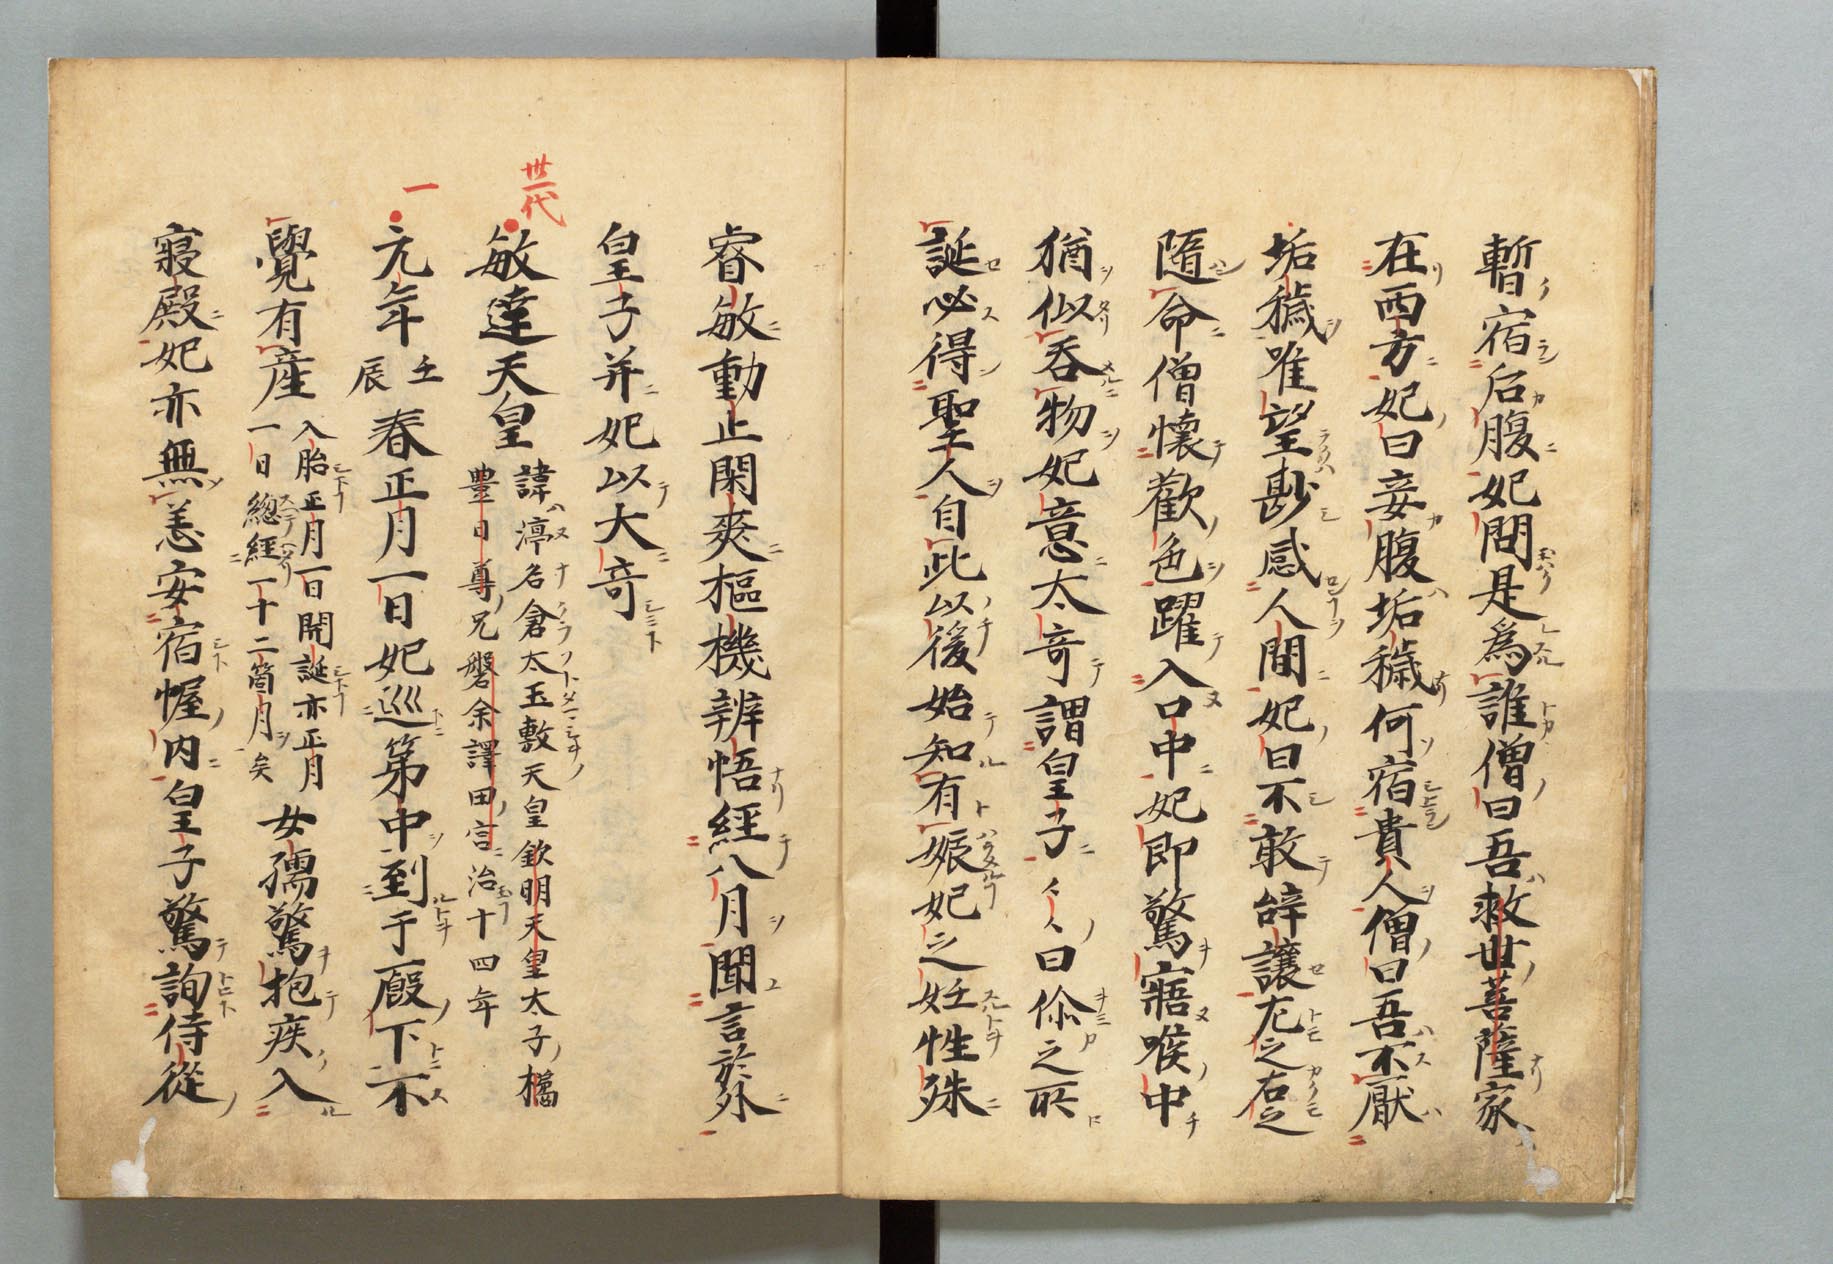 暫宿后腹妃問是爲誰僧曰吾救世菩薩家
在西方妃曰妾腹垢穢何宿貴人僧曰吾不厭
垢穢唯望尠感人間妃曰不敢辞讓左之右之
隨命僧懷歡色躍入口中妃即驚寤喉中
猶似吞物妃意太奇謂皇子〻〻曰你之所
誕必得聖人自此以後始知有娠妃之妊性殊
睿敏動止閑爽樞機辨悟經八月聞言於外
皇子并妃以大奇
卅一代
敏達天皇
諱渟名倉太玉敷天皇欽明天皇太子橘
豊日尊兄磐余譯田宮治十四年
一
元年壬辰春正月一日妃巡第中到于厩下不
覺有産
入胎正月一日開誕亦正月
一日總經一十二箇月矣
女孺驚抱疾入
寢殿妃亦無恙安宿幄内皇子驚詢侍從